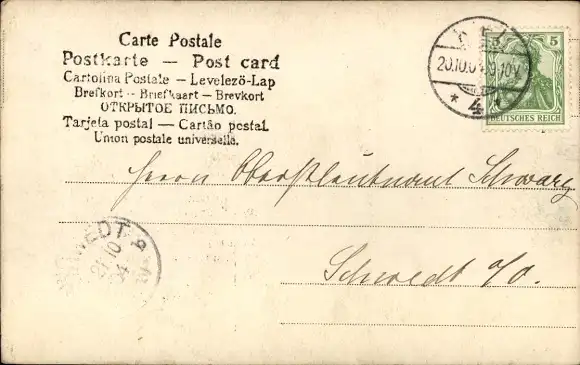 Carte Postale
Postkarte — Post card
Cartolina Postale — Levelező-Lap
Brefkort -- Briefkaart — Brevkort
ОТКРЫТОЕ ПИСЬМО.
Tarjeta postal — Cartão postal.
Union postale universelle.
5
DEUTSCHES REICH
* 4 *
Herrn Oberstleutnant Schwarz
Schwedt a/O.
21 10
04